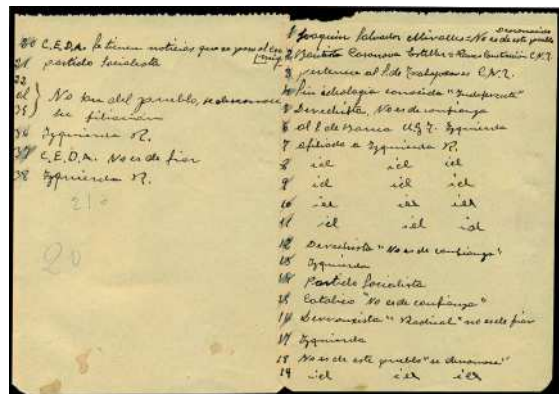 20 C.E.D.A. se tienen noticias que se paso al
21 partido Socialista
22
al } No son del pueblo, se desconoce
35 } su filiación
36 Izquierda R.
37 C.E.D.A. No es de fiar
38 Izquierda R.
210
20
1 Joaquin Salvador Miralles = No es de este pueblo
2 Bautista Casanova Esteller = C.N.T.
3 pertenece al S. de Trabajadores C.N.T.
4 Sin ideologia conocida "Indiferente"
5 Derechista, No es de confianza
6 al S. de U.G.T. Izquierda
7 afiliado a Izquierda R.
8 id id id
9 id id id
10 id id id
11 id id id
12 Derechista "No es de confianza"
13 Izquierda
14 Partido Socialista
15 Catolico "No es de confianza"
16 "Radical" no es de fiar
17 Izquierda
18 No es de este pueblo "se desconoce"
19 id id id